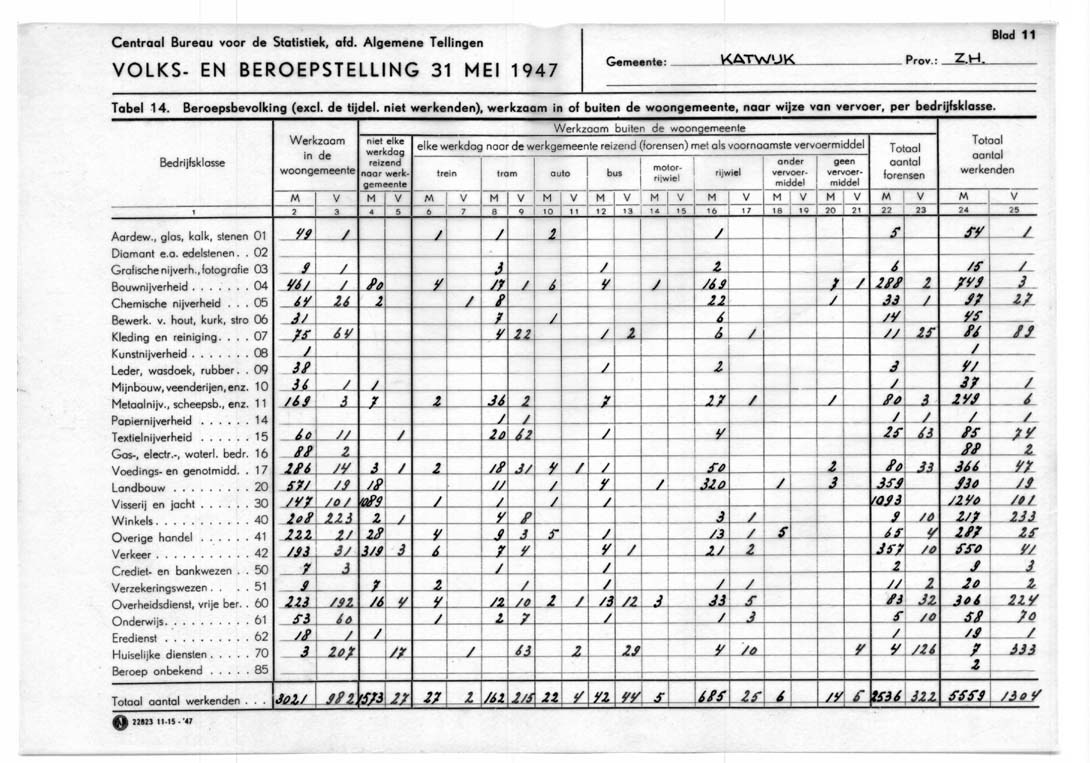 Centraal Bureau voor de Statistiek, afd. Algemene Tellingen
Blad 11
VOLKS- EN BEROEPSTELLING 31 MEI 1947
Gemeente: KATWIJK Prov.: Z.H.
Tabel 14. Beroepsbevolking (excl. de tijdel. niet werkenden), werkzaam in of buiten de woongemeente, naar wijze van vervoer, per bedrijfsklasse.
Bedrijfsklasse
Werkzaam in de woongemeente
Werkzaam buiten de woongemeente
niet elke werkdag reizend naar werkgemeente
elke werkdag naar de werkgemeente reizend (forensen) met als voornaamste vervoermiddel
trein tram auto bus motor-rijwiel rijwiel ander vervoer-middel geen vervoer-middel
Totaal aantal forensen
Totaal aantal werkenden
M V M V M V M V M V M V M V M V M V M V M V M V
1 2 3 4 5 6 7 8 9 10 11 12 13 14 15 16 17 18 19 20 21 22 23 24 25
Aardew., glas, kalk, stenen 01 49 1 1 1 2 1 5 54 1
Diamant e.a. edelstenen . . 02
Grafische nijverh., fotografie 03 9 1 3 1 2 6 15 1
Bouwnijverheid . . . . . . 04 461 1 80 4 17 1 6 4 1 169 7 1 288 2 749 3
Chemische nijverheid . . . 05 64 26 2 1 8 22 1 33 1 97 27
Bewerk. v. hout, kurk, stro 06 31 7 1 6 14 45
Kleding en reiniging . . . . 07 75 64 4 22 1 2 6 1 11 25 86 89
Kunstnijverheid . . . . . . . 08 1 1
Leder, wasdoek, rubber . . 09 38 1 2 3 41
Mijnbouw, veenderijen, enz. 10 36 1 1 1 37 1
Metaalnijv., scheepsb., enz. 11 169 3 7 2 36 2 7 27 1 1 80 3 249 6
Papiernijverheid . . . . . . 14 1 1 1 1 1 1
Textielnijverheid . . . . . . 15 60 11 1 20 62 1 4 25 63 85 74
Gas-, electr.-, waterl. bedr. 16 88 2 88 2
Voedings- en genotmidd. . 17 286 14 3 1 2 18 31 4 1 1 50 2 80 33 366 47
Landbouw . . . . . . . . . 20 571 19 18 11 1 4 1 320 1 3 359 930 19
Visserij en jacht . . . . . . 30 147 101 1089 1 1 1 1 1093 1240 101
Winkels . . . . . . . . . . 40 208 223 2 1 4 8 3 1 9 10 217 233
Overige handel . . . . . . 41 222 21 28 4 9 3 5 1 13 1 5 65 4 287 25
Verkeer . . . . . . . . . . 42 193 31 319 3 6 7 4 4 1 21 2 357 10 550 41
Crediet- en bankwezen . . 50 7 3 1 1 2 9 3
Verzekeringswezen . . . . 51 9 7 2 1 1 1 1 11 2 20 2
Overheidsdienst, vrije ber. . 60 223 192 16 4 4 12 10 2 1 13 12 3 33 5 83 32 306 224
Onderwijs . . . . . . . . . 61 53 60 1 2 7 1 1 3 5 10 58 70
Eredienst . . . . . . . . . 62 18 1 1 1 19 1
Huiselijke diensten . . . . . 70 3 207 17 1 63 2 29 4 10 4 4 126 7 333
Beroep onbekend . . . . . 85 2
Totaal aantal werkenden . . . 3021 982 1573 27 27 2 162 215 22 4 42 44 5 685 25 6 14 5 2536 322 5559 1304
22823 11-15 - '47